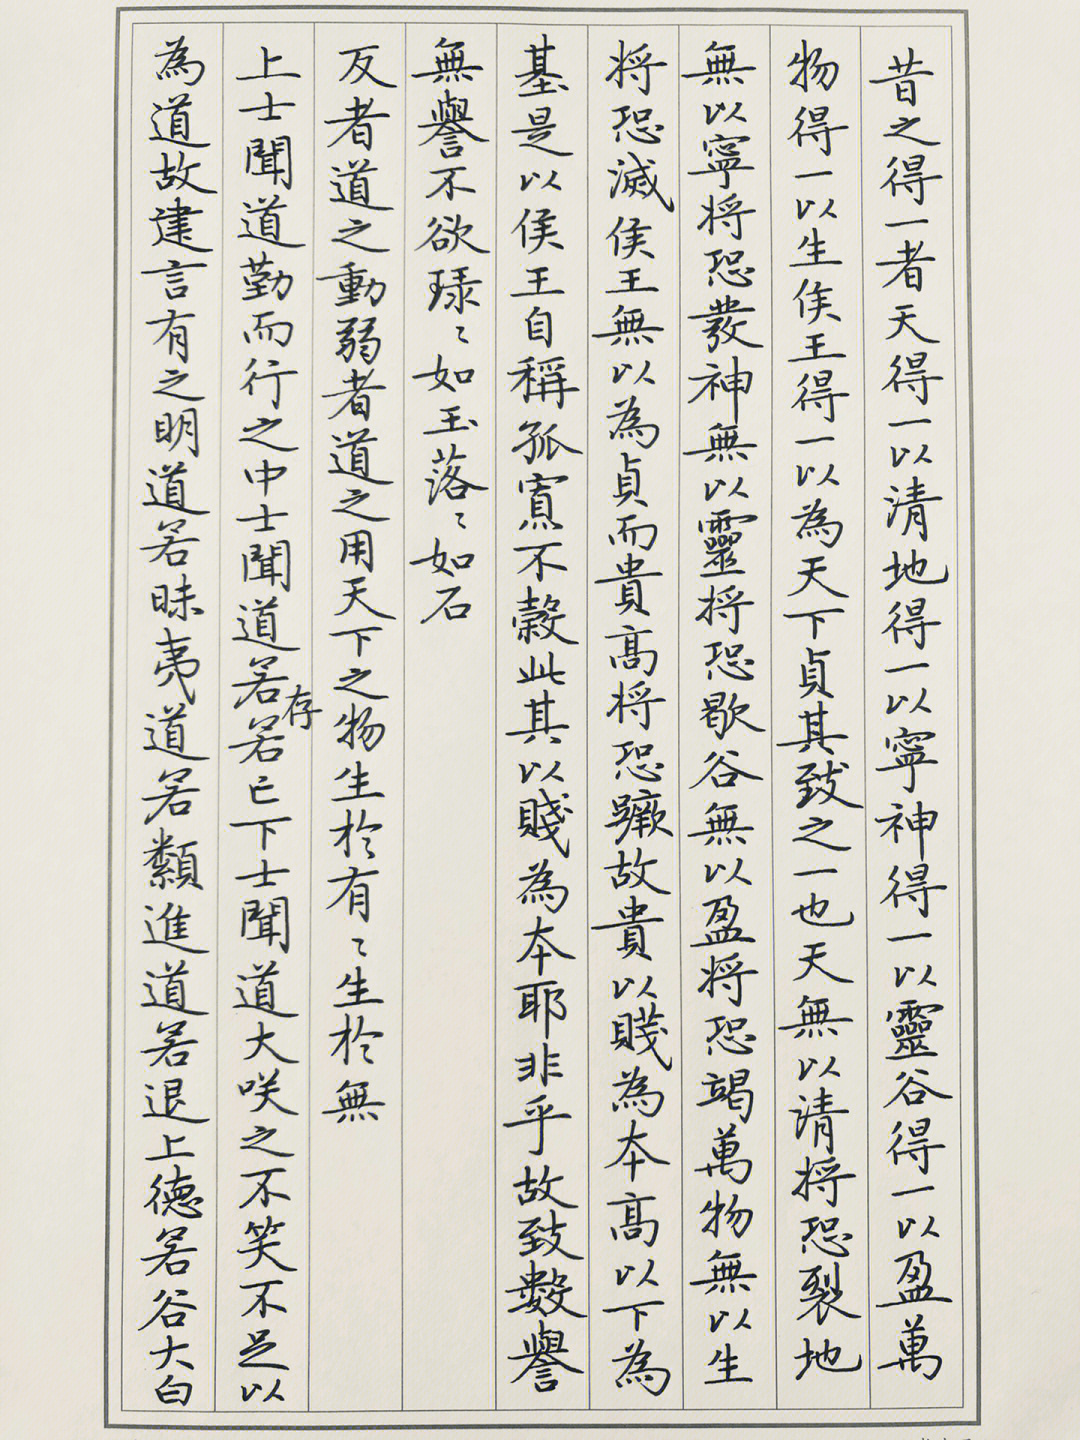 昔之得一者天得一以清地得一以寧神得一以靈谷得一以盈萬
物得一以生侯王得一以為天下貞其致之一也天無以清將恐裂地
無以寧將恐發神無以靈將恐歇谷無以盈將恐竭萬物無以生
將恐滅侯王無以為貞而貴高將恐蹶故貴以賤為本高以下為
基是以侯王自稱孤寡不穀此其以賤為本耶非乎故致數譽
無譽不欲琭〻如玉落〻如石
反者道之動弱者道之用天下之物生於有〻生於無
上士聞道勤而行之中士聞道若存若亡下士聞道大咲之不笑不足以
為道故建言有之明道若昧夷道若纇進道若退上德若谷大白